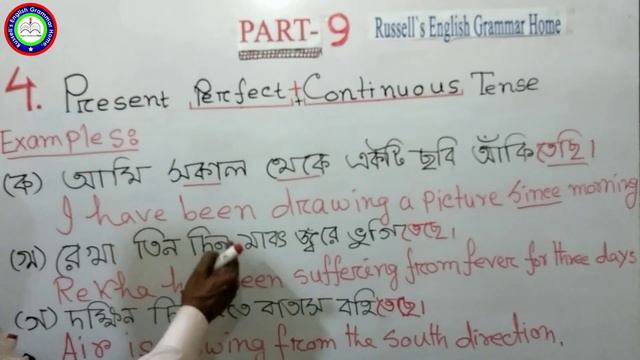 Russell's English Grammar Home.
PART-9 Russell's English Grammar Home
4. Present Perfect + Continuous Tense
Examples:
(ক) আমি সকাল থেকে একটি ছবি আঁকিতেছি।
I have been drawing a picture since morning
(খ) রেখা তিন দিন যাবৎ জ্বরে ভুগিতেছে।
Rekha been suffering from fever for three days
(গ) দক্ষিন বাতাস বহিতেছে।
Air is from the south direction.